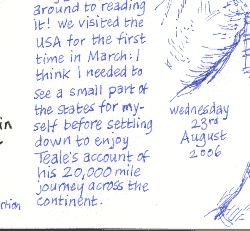 around to reading
it! we visited the
USA for the first
time in March: I
think I needed to
see a small part of
the states for my-
self before settling
down to enjoy
Teale's account of
his 20,000 mile
journey across the
continent.
wednesday
23rd
August
2006
in